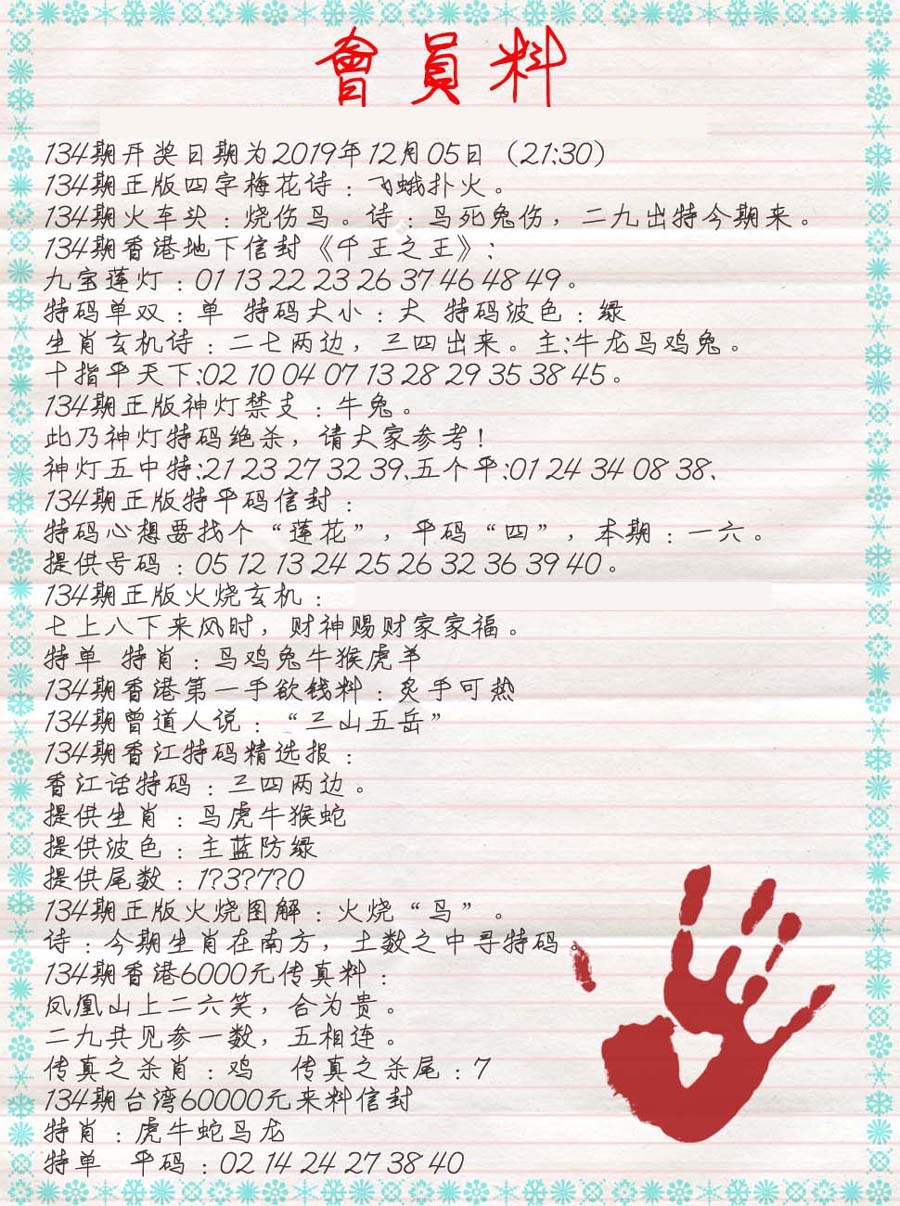 會員料
134期开奖日期为2019年12月05日（21:30）
134期正版四字梅花诗：飞蛾扑火。
134期火车头：烧伤鸟。诗：鸟死兔伤，二九出特今期来。
134期香港地下信封《千王之王》:
九宝莲灯：01 13 22 23 26 37 46 48 49。
特码单双：单 特码大小：大 特码波色：绿
生肖玄机诗：二七两边，三四出来。主:牛龙鸟鸡兔。
十指平天下:02 10 04 07 13 28 29 35 38 45。
134期正版神灯禁支：牛兔。
此乃神灯特码绝杀，请大家参考！
神灯五中特:21 23 27 32 39.五个平:01 24 34 08 38、
134期正版特平码信封：
特码心想要找个“莲花”，平码“四”，本期：一六。
提供号码：05 12 13 24 25 26 32 36 39 40。
134期正版火烧玄机：
七上八下来风时，财神赐财家家福。
特单 特肖：鸟鸡兔牛猴虎羊
134期香港第一手欲钱料：炙手可热
134期曾道人说：“三山五岳”
134期香江特码精选报：
香江话特码：三四两边。
提供生肖：鸟虎牛猴蛇
提供波色：主蓝防绿
提供尾数：1?3?7?0
134期正版火烧图解：火烧“鸟”。
诗：今期生肖在南方，土数之中寻特码。
134期香港6000元传真料：
凤凰山上二六笑，合为贵。
二九共见参一数，五相连。
传真之杀肖：鸡 传真之杀尾：7
134期台湾60000元来料信封
特肖：虎牛蛇鸟龙
特单 平码：02 14 24 27 38 40